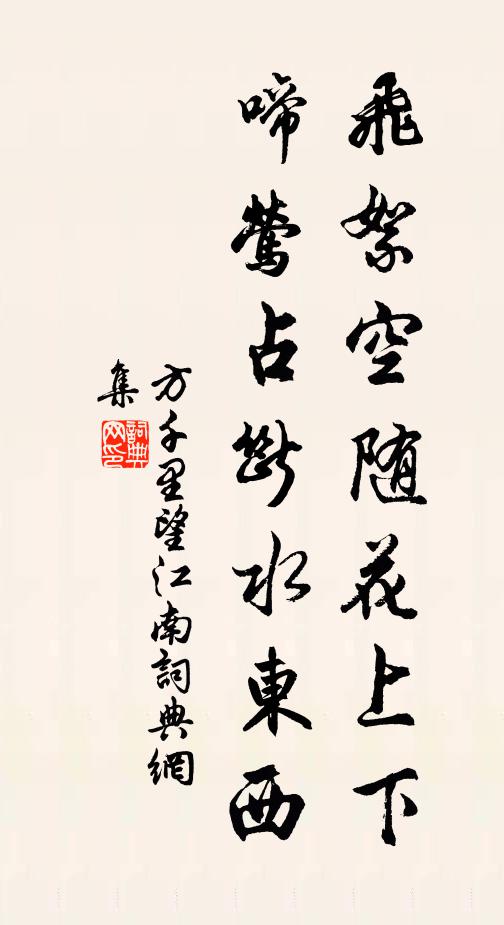 飛絮空随花上下
啼鶯占斷水東西
方千里望江南詞典網
集
詞典网印